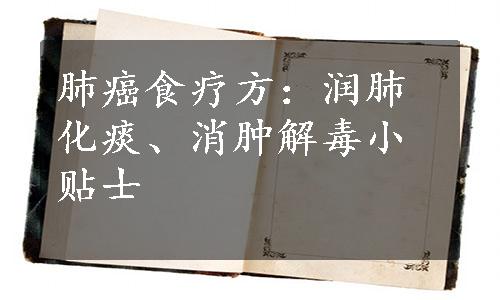 肺癌食疗方：润肺
化痰、消肿解毒小
贴士